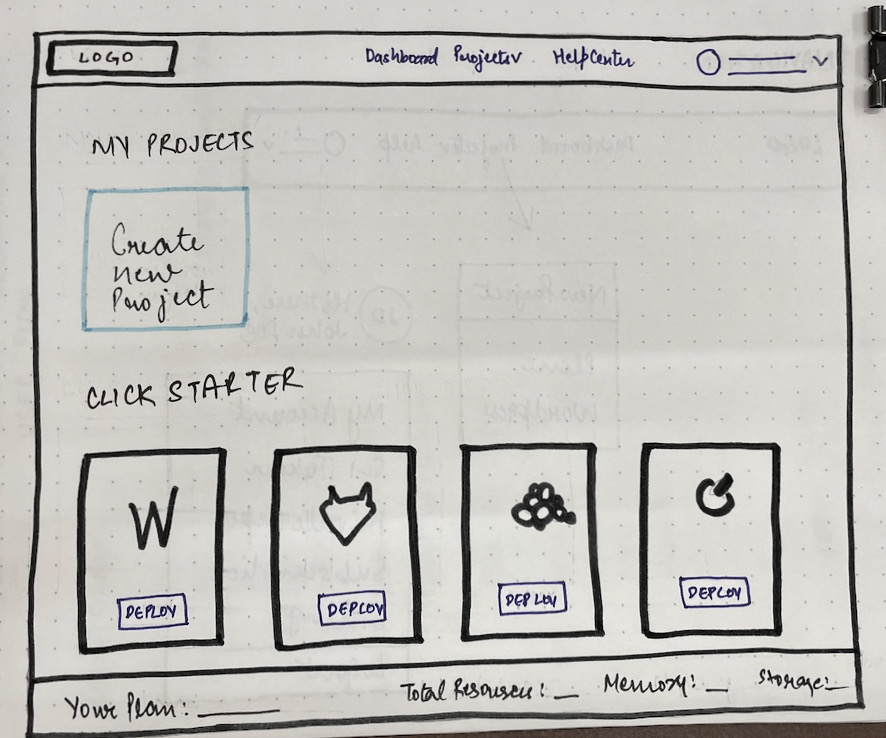 LOGO
Dashboard Projects HelpCenter
MY PROJECTS
Create
new
Project
CLICK STARTER
W
DEPLOY DEPLOY DEPLOY DEPLOY
Your Plan: Total Resourses: Memory: Storage: